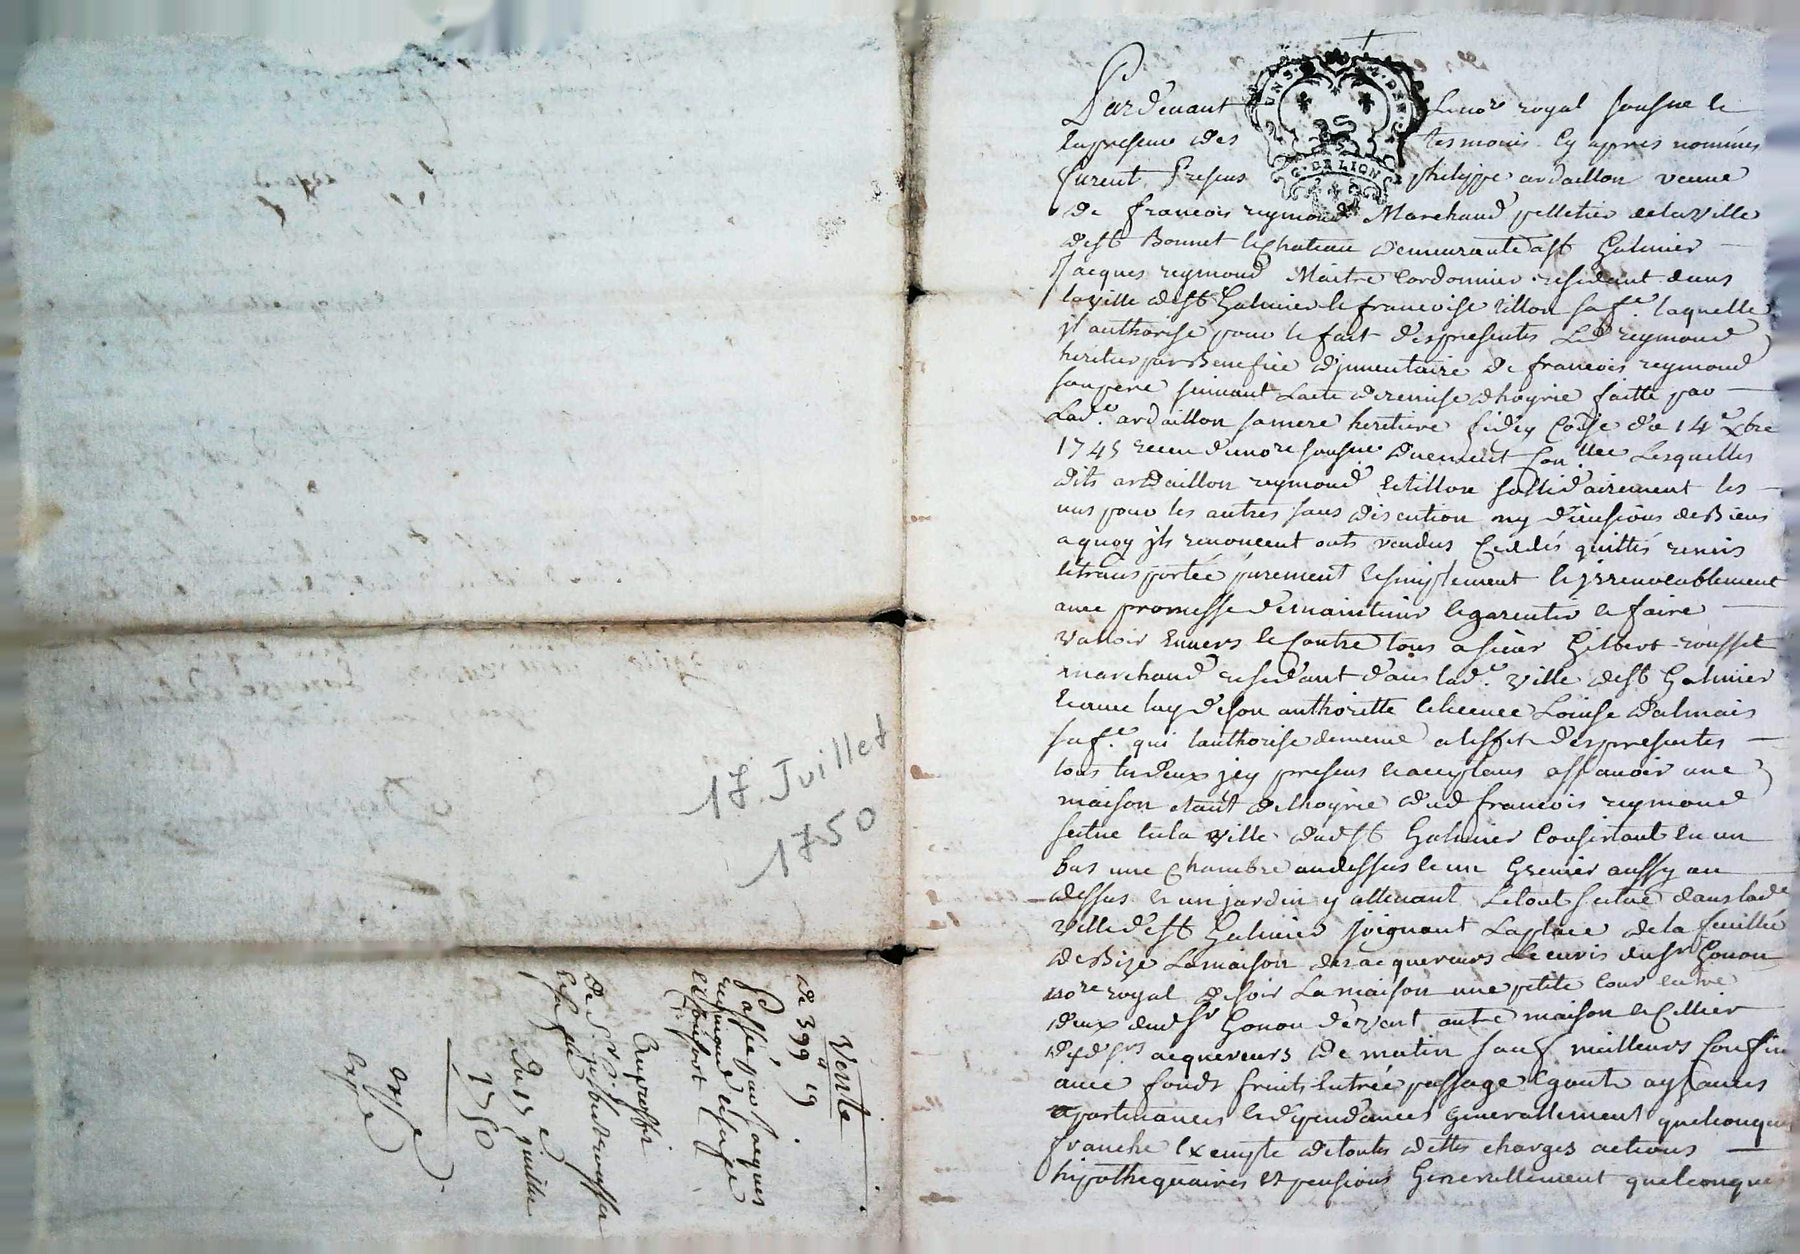 17 Juillet
1750
Vente
de 399 ₶ 19
Passée par Jacques
reymond et sa fe
et consort
Au proffit
de Sr gilbert rousset
et sa fe
Du 17e juillet
1750
Par devant Le nore royal sousne et
en presence des tesmoins cy apres nommés
furent Presens philippe ardaillon veuve
de francois reymond Marchand pelletier de la ville
de st Bonnet le Chateau demeurante a st Galmier
Jacques reymond Maitre Cordonnier residant dans
la ville de st Galmier et francoise tillon sa fe. laquelle
jl authorise pour le fait des presentes Led reymond
heritier par Benefice d'jnventaire de francois reymond
son pere suivant Lacte de remise dhoyrie faitte par
Lade. ardaillon sa mere heritiere de 14e xbre
1745 receu du nore sousne duement Lesquelles
dits ardaillon reymond et tillon sollidairement les
uns pour les autres sans discution ny divisions de Biens
a quoy jls renoncent onts vendus Ceddés quittés remis
et transportée purement et simplement et jrrevocablement
avec promesse de maintenir et garentir et faire
valloir envers et Contre tous a sieur Gilbert rousset
marchand residant dans lade. ville de st Galmier
et avec luy de son authoritte et licence Louise Dalmais
sa fe. qui lauthorise de meme a leffet des presentes
tous les deux jcy presens et acceptans assavoir une
maison etant de lhoyrie dud francois reymond
scitue en la ville dud st Galmier Consistant en un
bas une Chambre au dessus et un Grenier aussy au
dessus et un jardin y attenant Le tout scitué dans lade
ville de st Galmier joignant La place de la feuillée
de Bize La maison des acquereurs Gonon
nore royal de soir La maison une petite cour entre
deux dud Sr Gonon de vent autre maison et Cellier
desds acquereurs de matin sauf meilleurs Confins
avec fonds fruits entrée passage aysances
apartenances et dependances generallement quelconques
franche Exempte de toutes dettes charges actions
hipothequaires et pensions Generallement quelconques